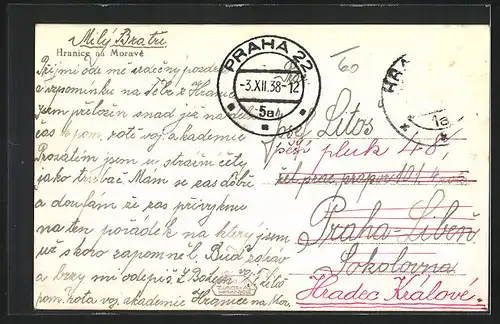 Milý Bratře
Hranice na Moravě
Přijmi ode mě srdečný pozdrav
a vzpomínku na Tebe z Hranic
jsem přeložen snad již na
čas k pom. rotě voj. akademie
Prozatím jsem u strážní čety
jako trubač Mám se zas dobře
a doufám že zas přivyknu
na ten pořádek na který jsem
už skoro zapomněl. Buď zdráv
a brzy mi odepiš Z Bohem voj. Litoš
pom. rota voj. akademie Hranice na Mor.
PRAHA 22
-3.XII.38-12
5a
60
HRA
1a
Josef Litoš
pěší pluk 48/
žel. prac. prapor
Praha-Libeň
Sokolovna
Hradec Králové.